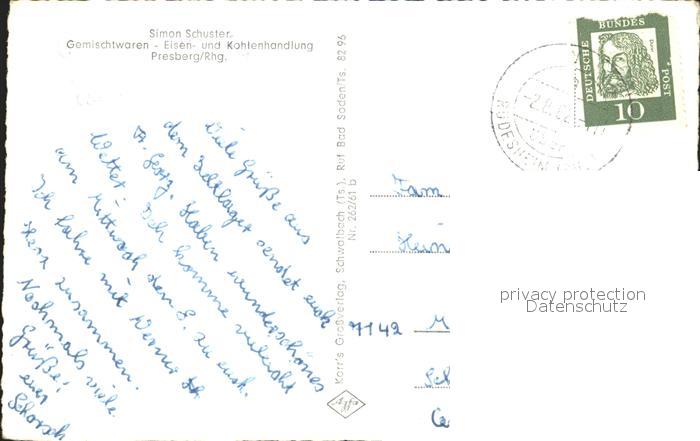 Simon Schuster
Gemischtwaren - Eisen- und Kohlenhandlung
Presberg/Rhg.
Viele Grüße aus
dem Zeltlager sendet euch
Georg. Haben wunderschönes
Wetter. Ich komme vieleicht
am Mittwoch den 8. zu euch.
Ich fahre mit Werner
zusammen.
Nochmals viele
Grüße!
euer
Schorsch
Korr's Großverlag, Schwalbach (Ts.), Ruf Bad Soden/Ts. 82 96
Nr. 262/61 b
DEUTSCHE BUNDES POST
Dürer
10
RÜDESHEIM
Fam
Hein
M
Sch
privacy protection
Datenschutz